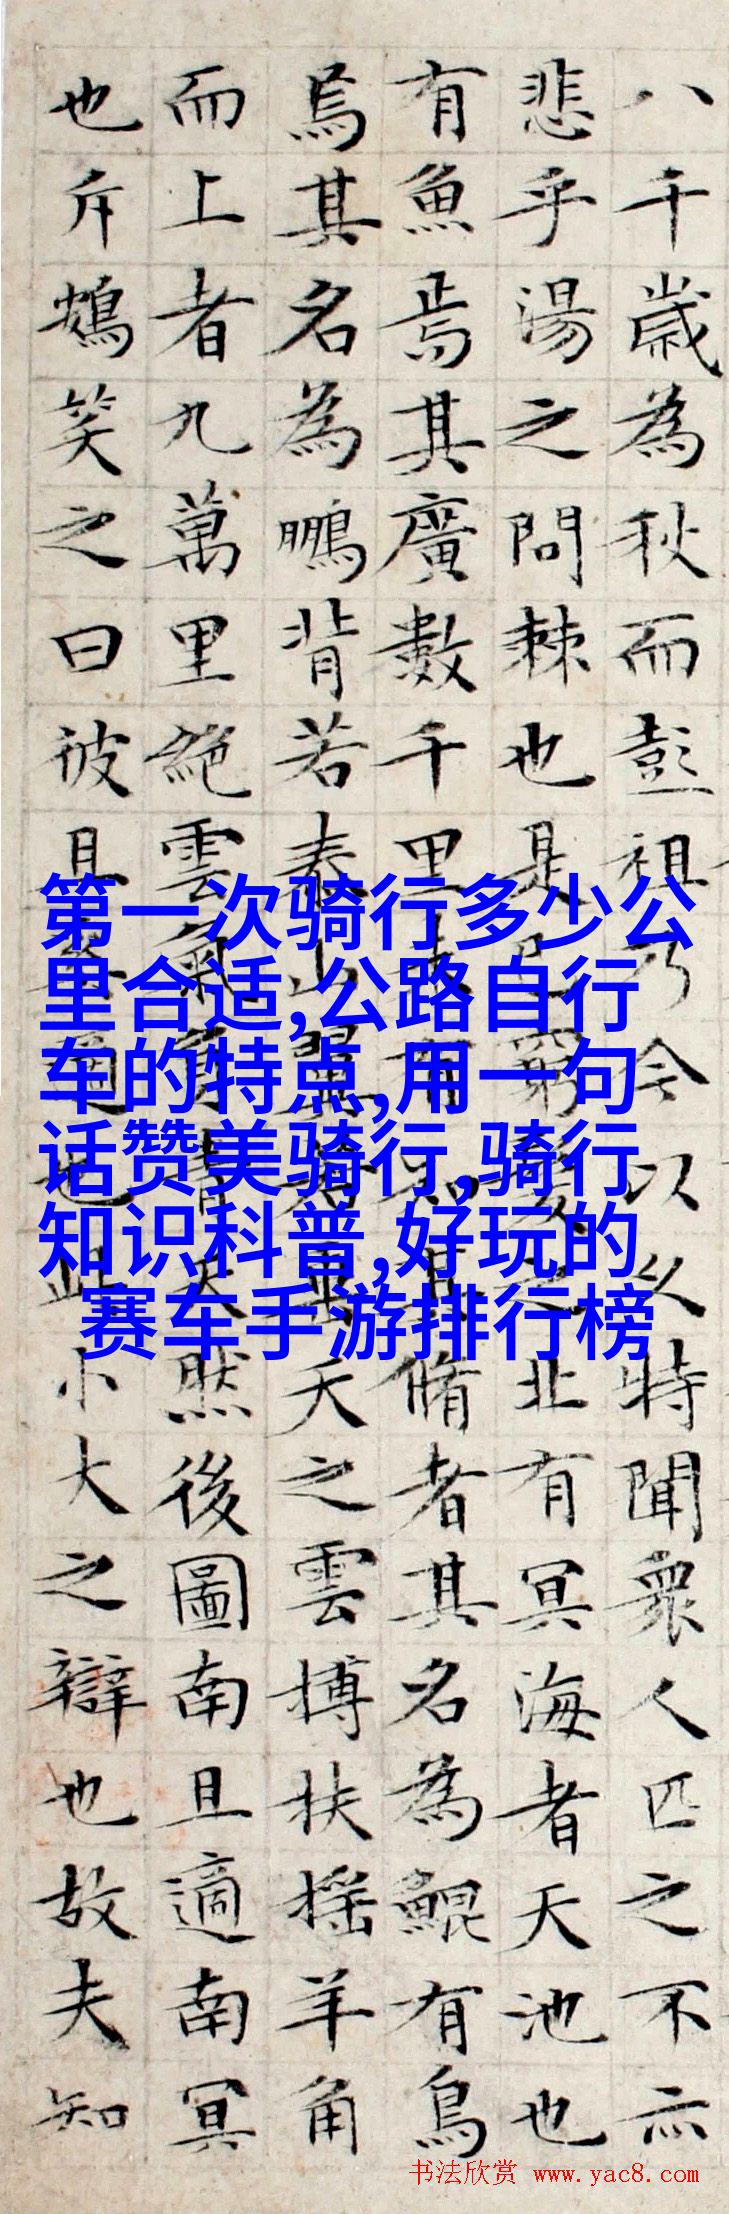 八千歲為秋而彭祖乃今以久特聞眾人匹之不亦
悲乎湯之問棘也是已窮髮之北有冥海者天池也
有魚焉其廣數千里未有知其脩者其名為鯤有鳥
焉其名為鵬背若泰山翼若垂天之雲搏扶搖羊角
而上者九萬里絕雲氣負青天然後圖南且適南冥
也斥鴳笑之曰彼且奚適也此小大之辯也故夫知
第一次骑行多少公
里合适,公路自行
车的特点,用一句
话赞美骑行,骑行
知识科普,好玩的
赛车手游排行榜
书法欣赏 www.yac8.com